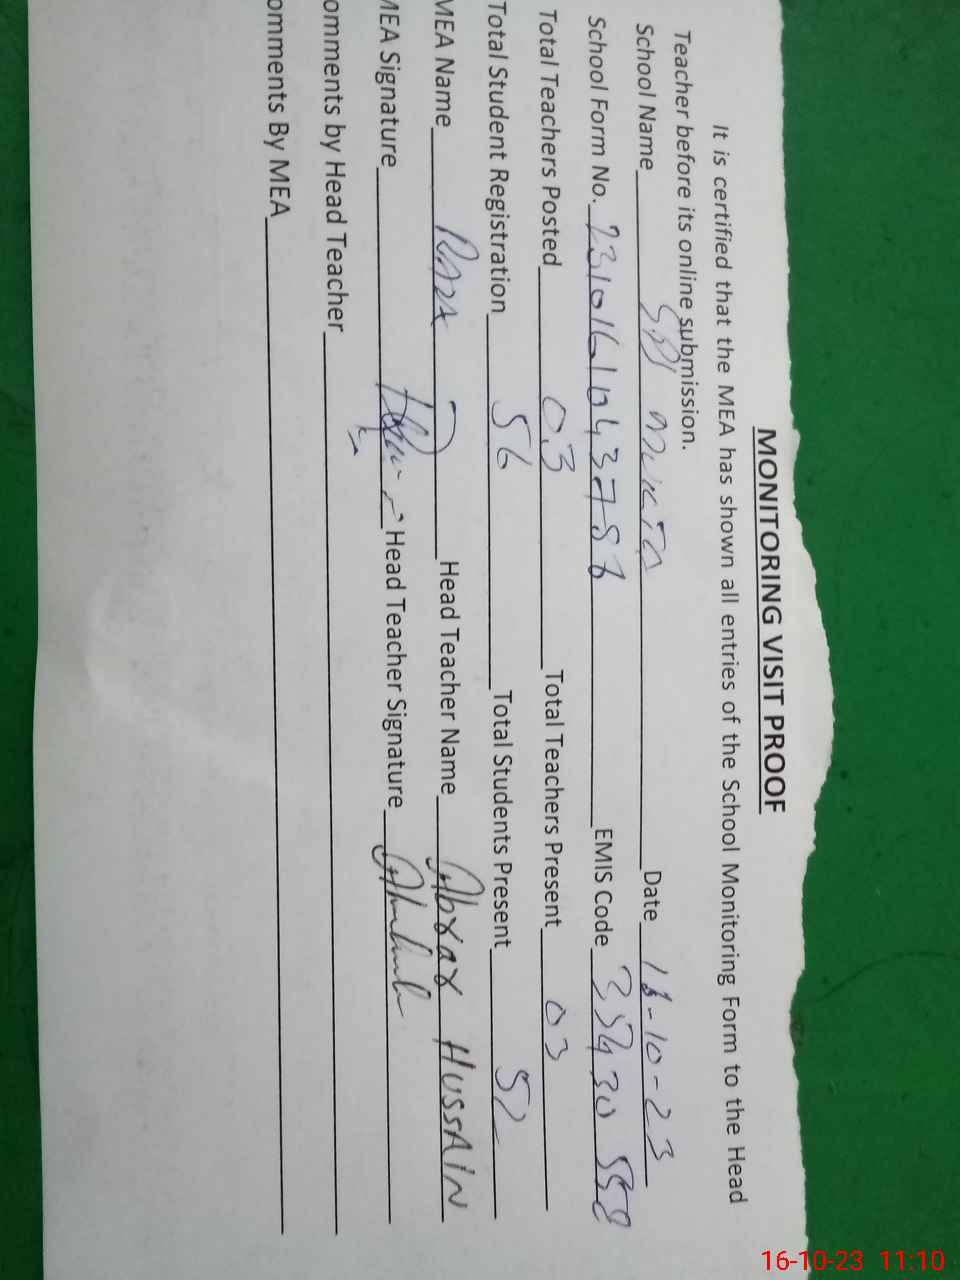 MONITORING VISIT PROOF
It is certified that the MEA has shown all entries of the School Monitoring Form to the Head
Teacher before its online submission.
School Name Date 16-10-23
School Form No. EMIS Code
Total Teachers Posted 03 Total Teachers Present 03
Total Student Registration 56 Total Students Present 52
MEA Name RAZA Head Teacher Name Abrar HUSSAIN
MEA Signature Head Teacher Signature
omments by Head Teacher
omments By MEA
16-10-23 11:10